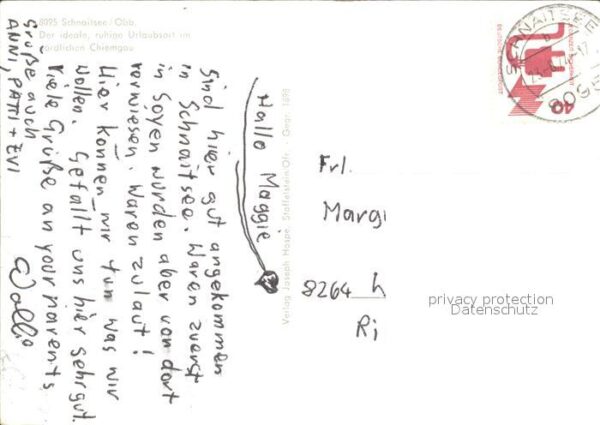 8095 Schnaitsee/Obb.
Der ideale, ruhige Urlaubsort im
nördlichen Chiemgau
Hallo Maggie
Sind hier gut angekommen
in Schnaitsee. Waren zuerst
in Soyen wurden aber von dort
verwiesen. Waren zu laut!
Hier können wir tun was wir
wollen. Gefällt uns hier sehr gut.
Viele Grüße an your parents
Wolle
Grüße auch
ANNI, PATI + EVI
Verlag Joseph Hospe, Staffelstein/Ofr. - Gegr. 1898
40
SCHNAITSEE
8095
Frl.
Margi
8264
Ri
privacy protection
Datenschutz